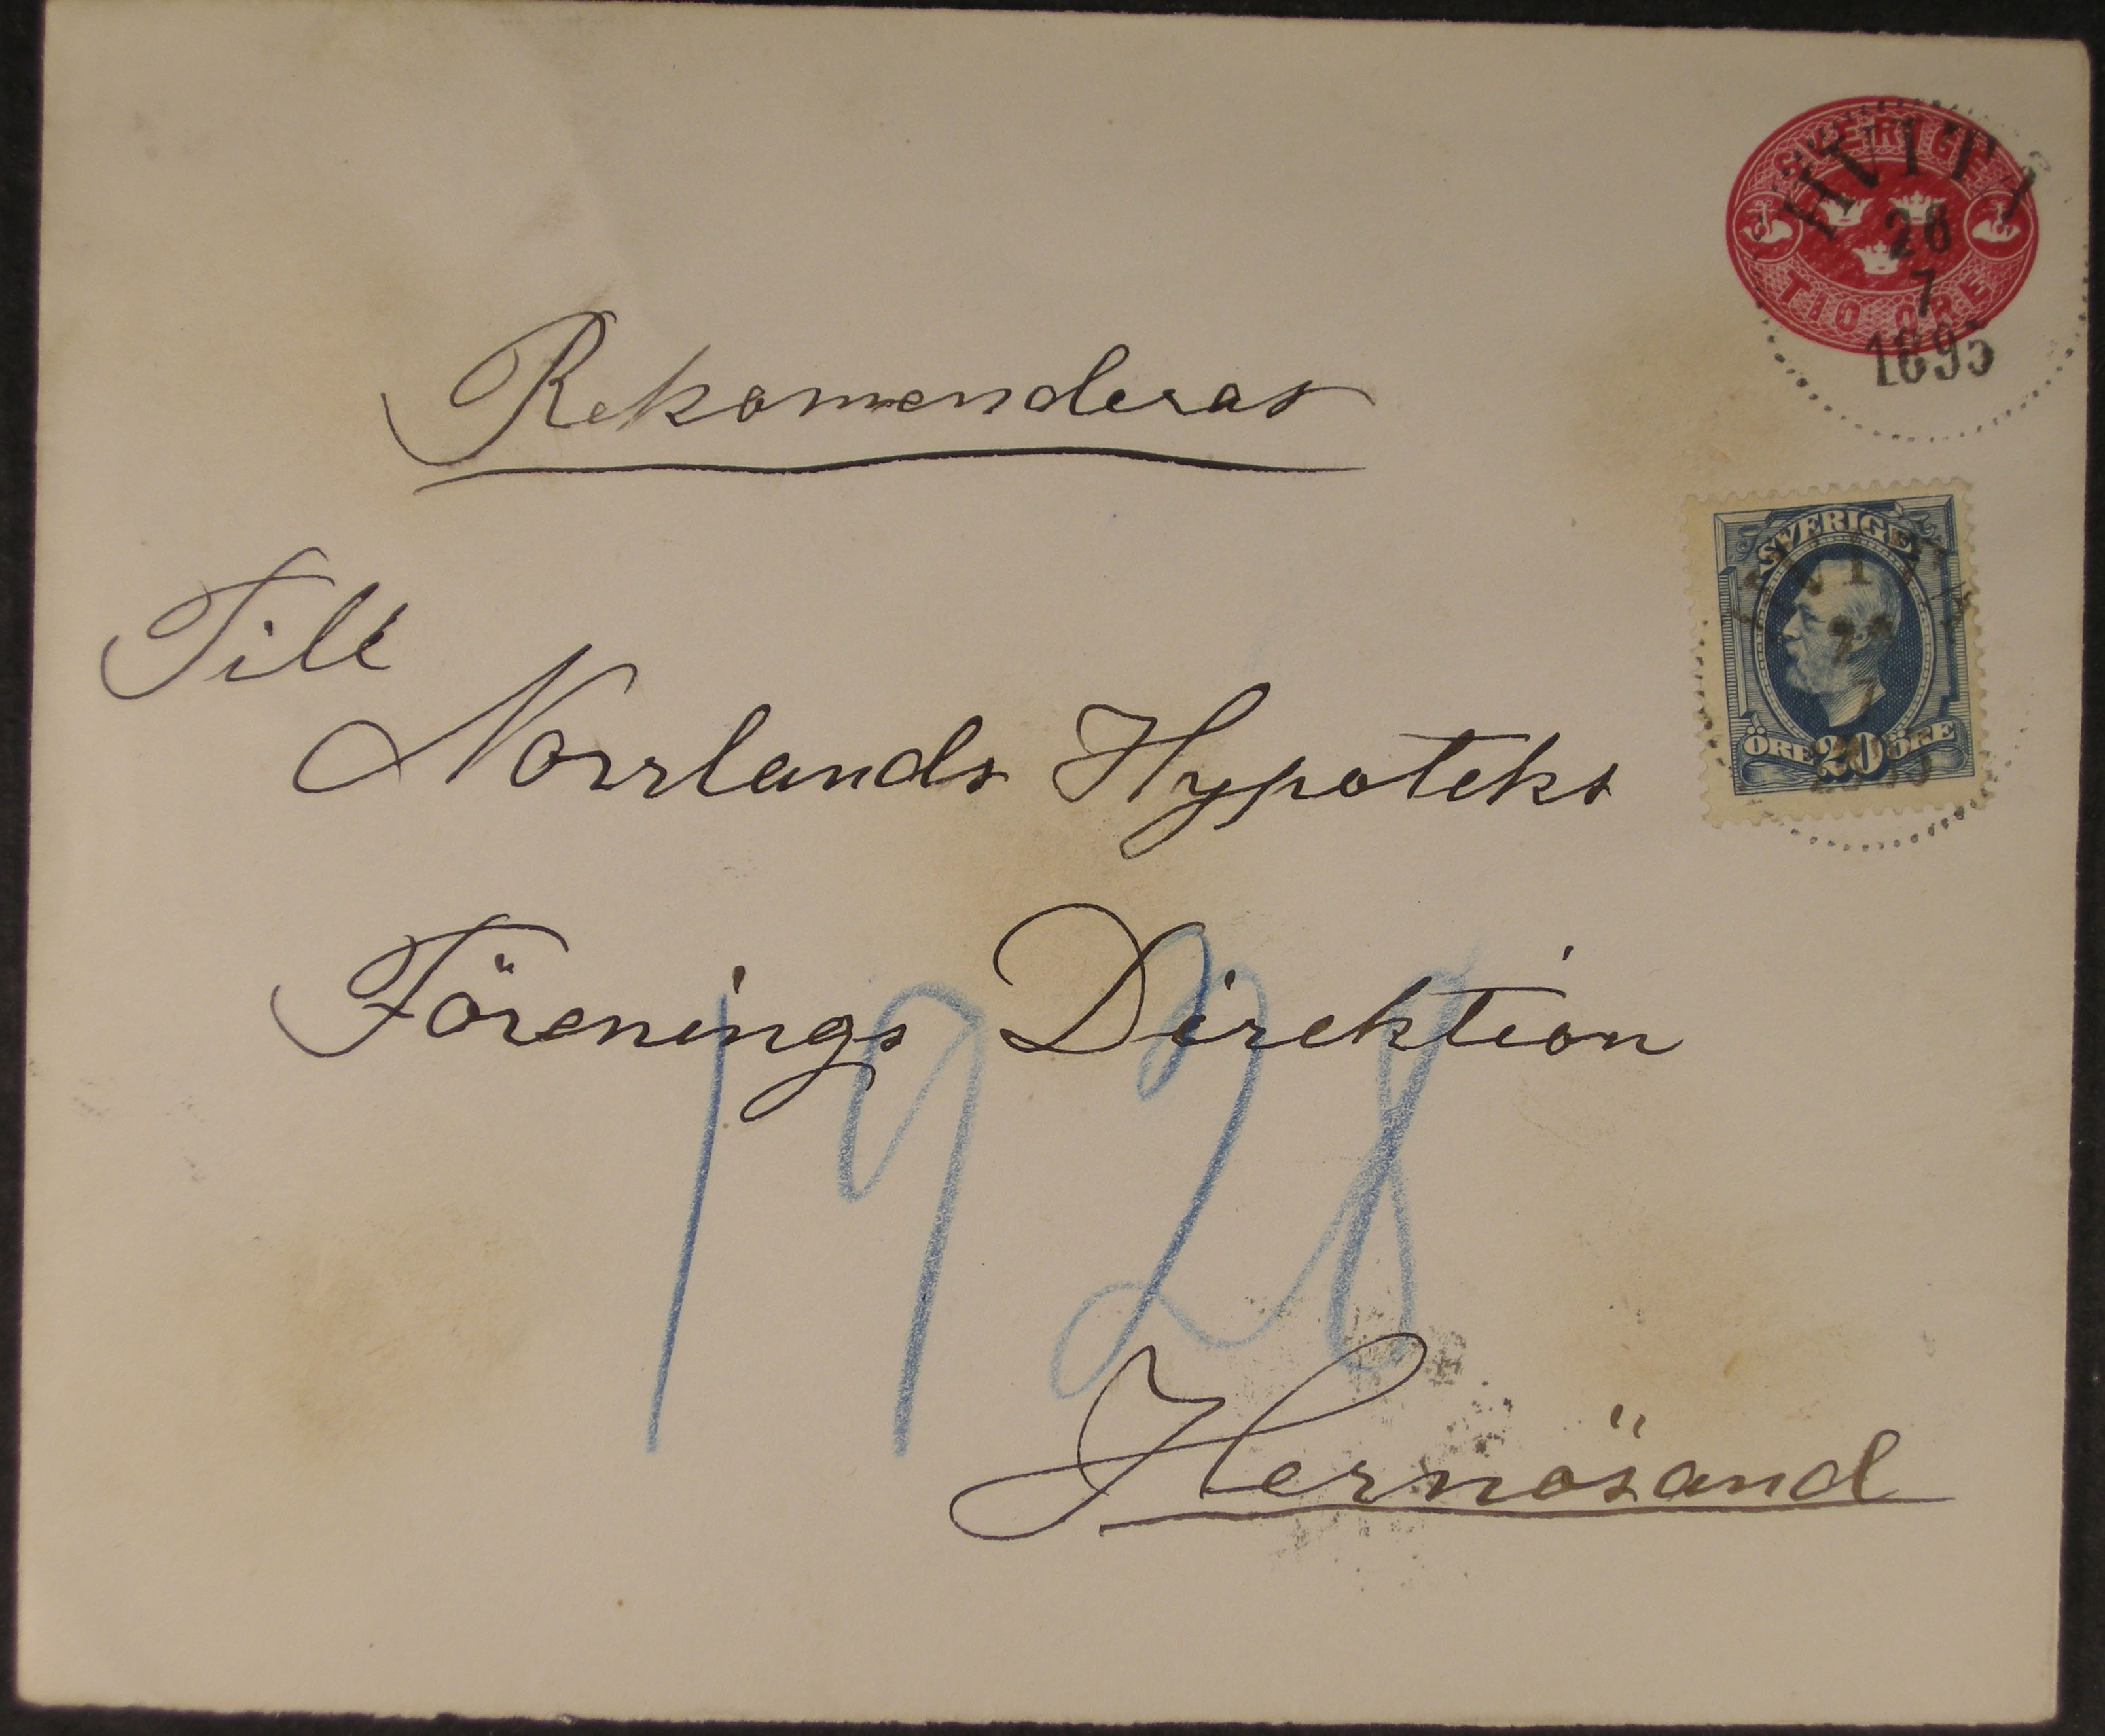 SVERIGE
TIO ÖRE
HVITÅ
28
7
1895
Rekomenderas
SVERIGE
ÖRE 20 ÖRE
Till
Norrlands Hypoteks
Förenings Direktion
1928
Hernösand